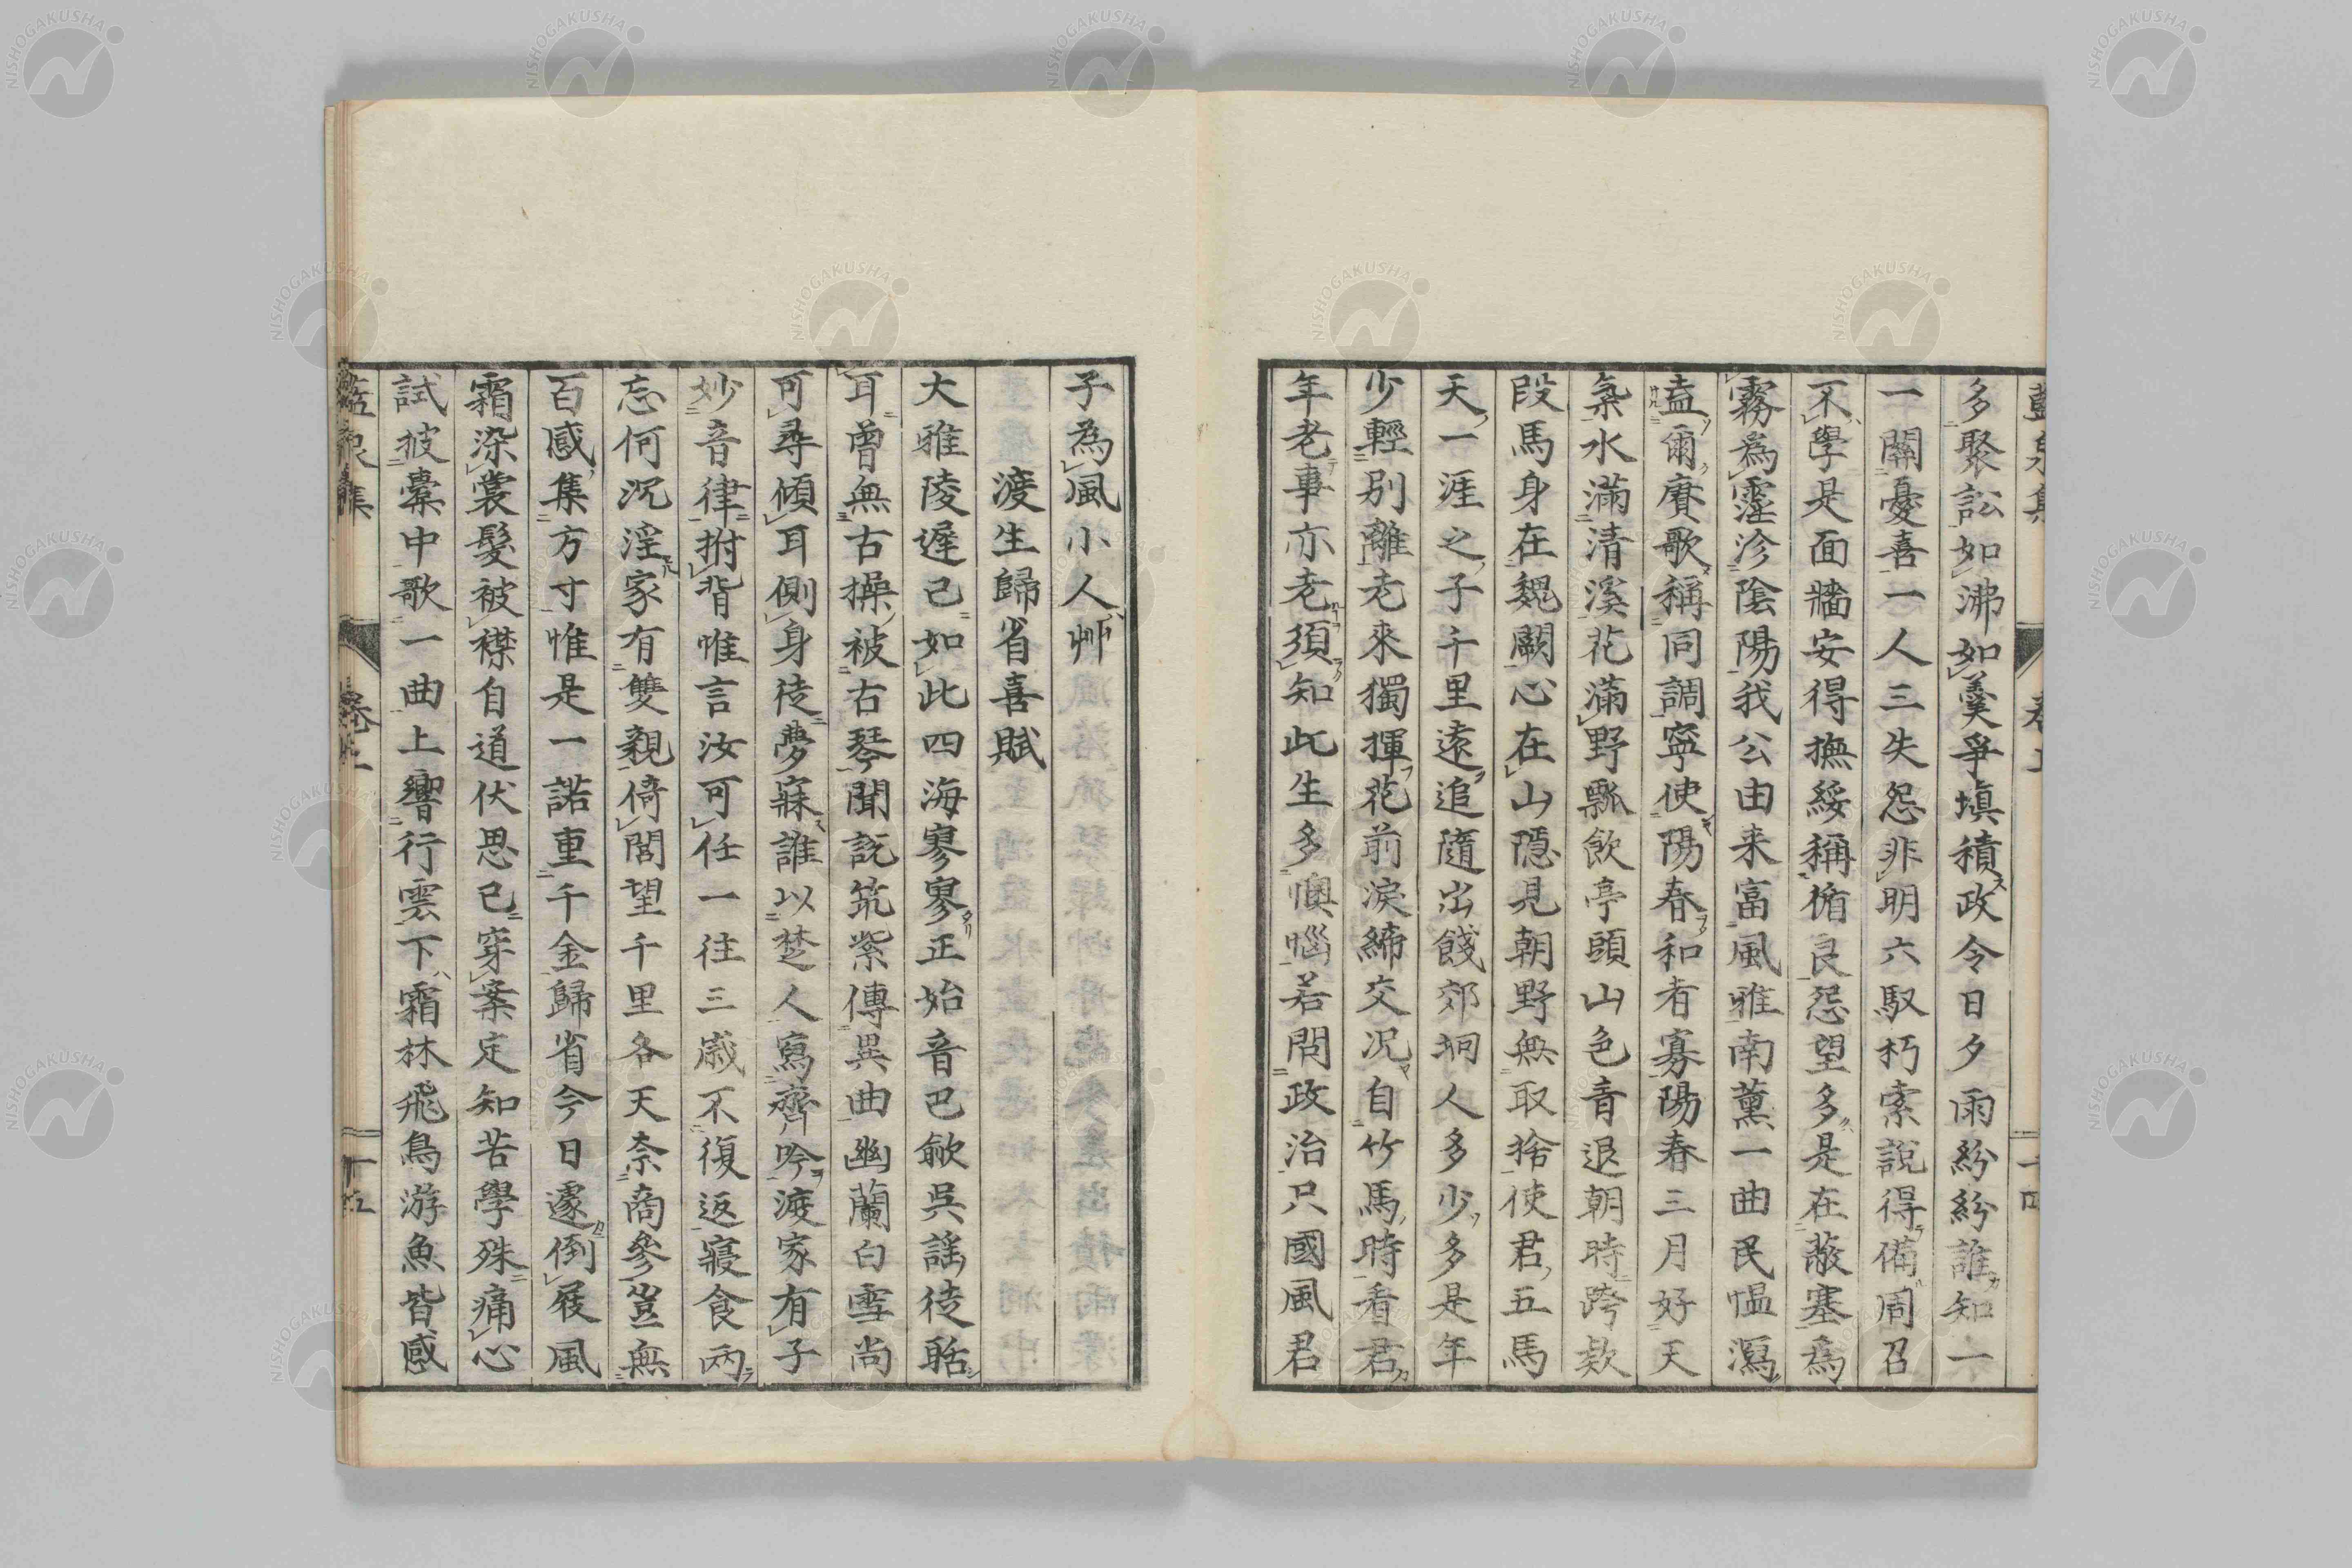 多聚訟如沸如羹爭塡積政令日夕雨紛紛誰知一
一關憂喜一人三失怨非明六馭朽索說得備周召
不學是面牆安得撫綏稱循良怨望多是在蔽塞爲
霧爲霪沴陰陽我公由来富風雅南薰一曲民愠瀉
盍爾賡歌稱同調寧使陽春和者寡陽春三月好天
氣水滿清溪花滿野瓢飲亭頭山色青退朝時跨款
段馬身在魏闕心在山隱見朝野無取捨使君五馬
天一涯之子千里遠追隨出餞郊坰人多少多是年
少輕別離老來獨揮花前淚締交況自竹馬時看君
年老事亦老須知此生多懊惱若問政治只國風君
子為風小人艸
渡生歸省喜賦
大雅陵遲已如此四海寥寥正始音巴歈吳謠徒聒
耳曾無古操被古琴聞説筑紫傳異曲幽蘭白雪尚
可尋傾耳側身徒夢寐誰以楚人寫齊吟渡家有子
妙音律拊背惟言汝可任一往三歲不復返寢食兩
忘何沉淫家有雙親倚閭望千里各天奈商參豈無
百感集方寸惟是一諾重千金歸省今日遽倒屐風
霜染裳髮被襟自道伏思已穿案定知苦學殊痛心
試披囊中歌一曲上響行雲下霜林飛鳥游魚皆感